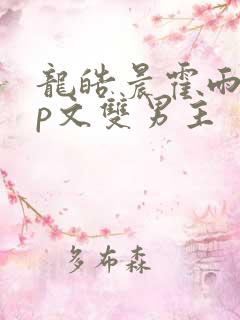 龍皓晨霍雨
p文雙男主
多布森